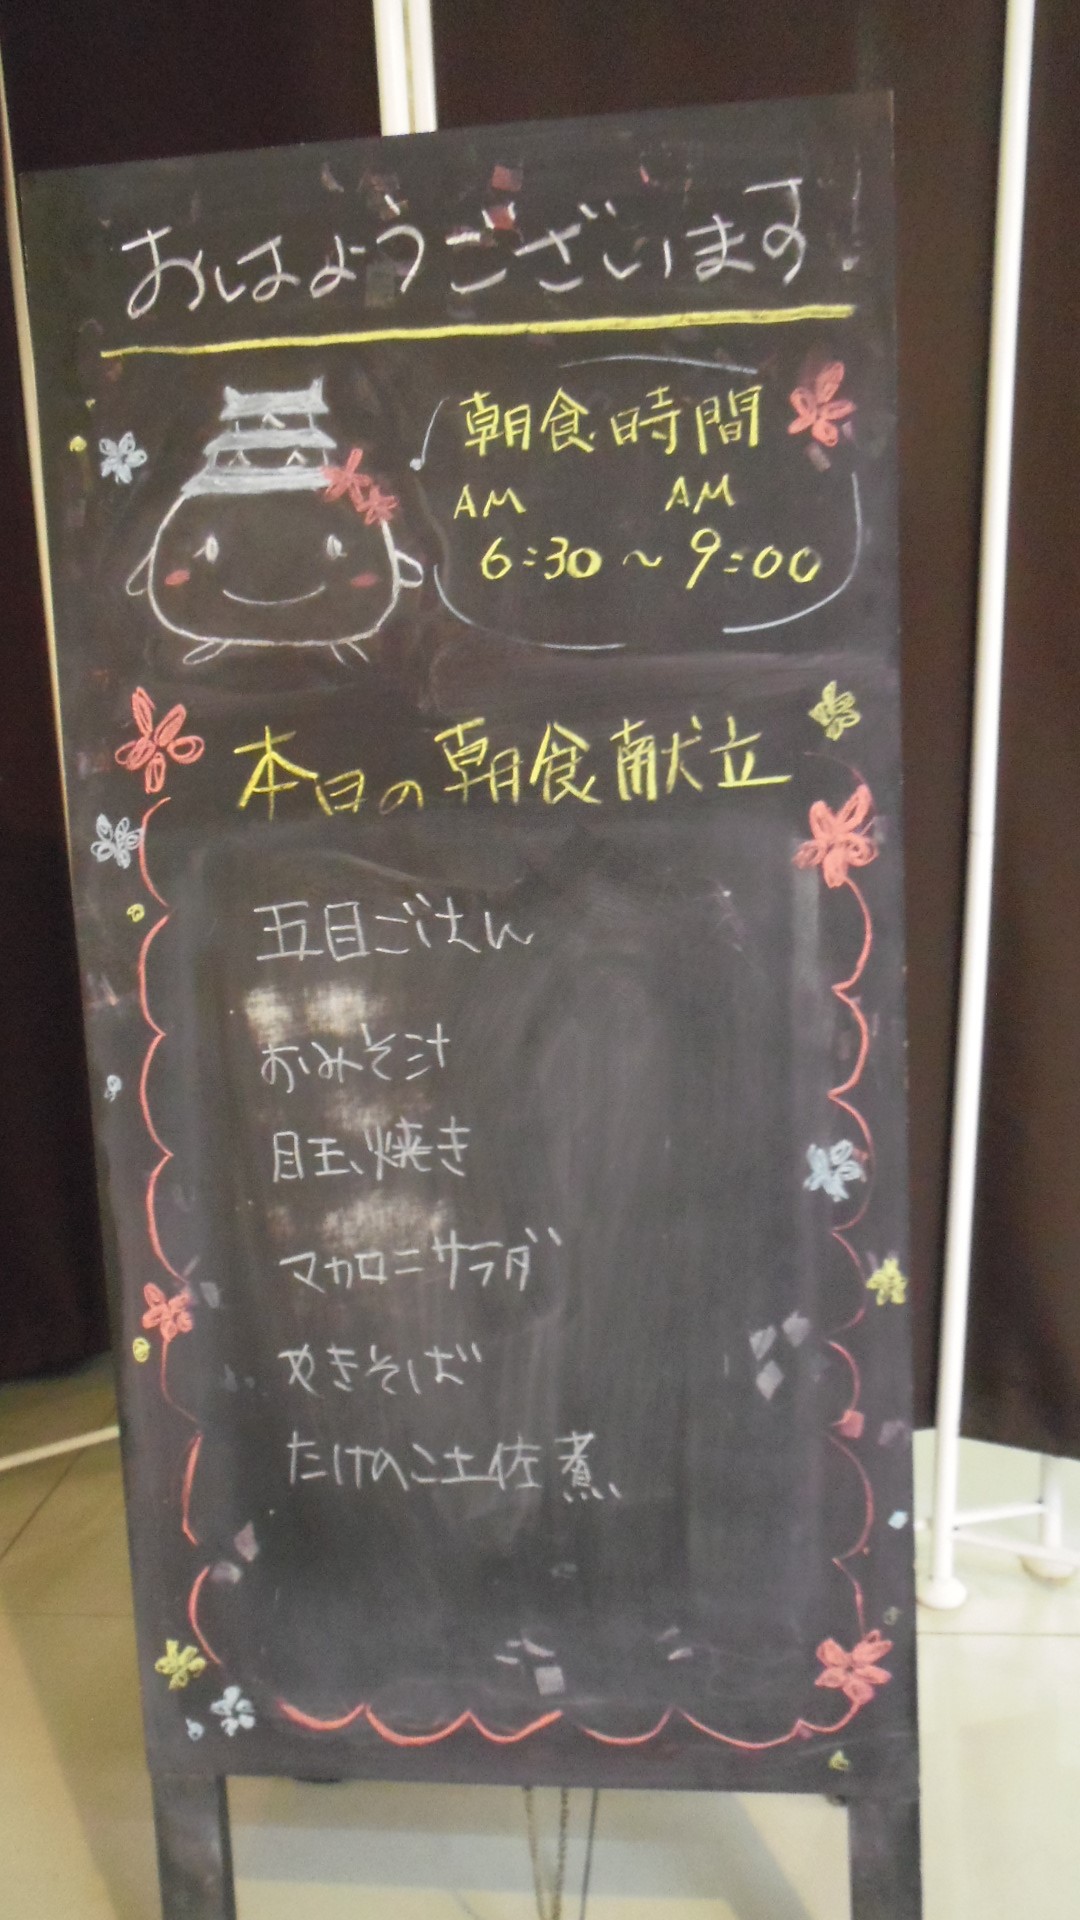 おはようございます
朝食時間
AM AM
6:30～9:00
本日の朝食献立
五目ごはん
おみそ汁
目玉焼き
マカロニサラダ
やきそば
たけのこ土佐煮